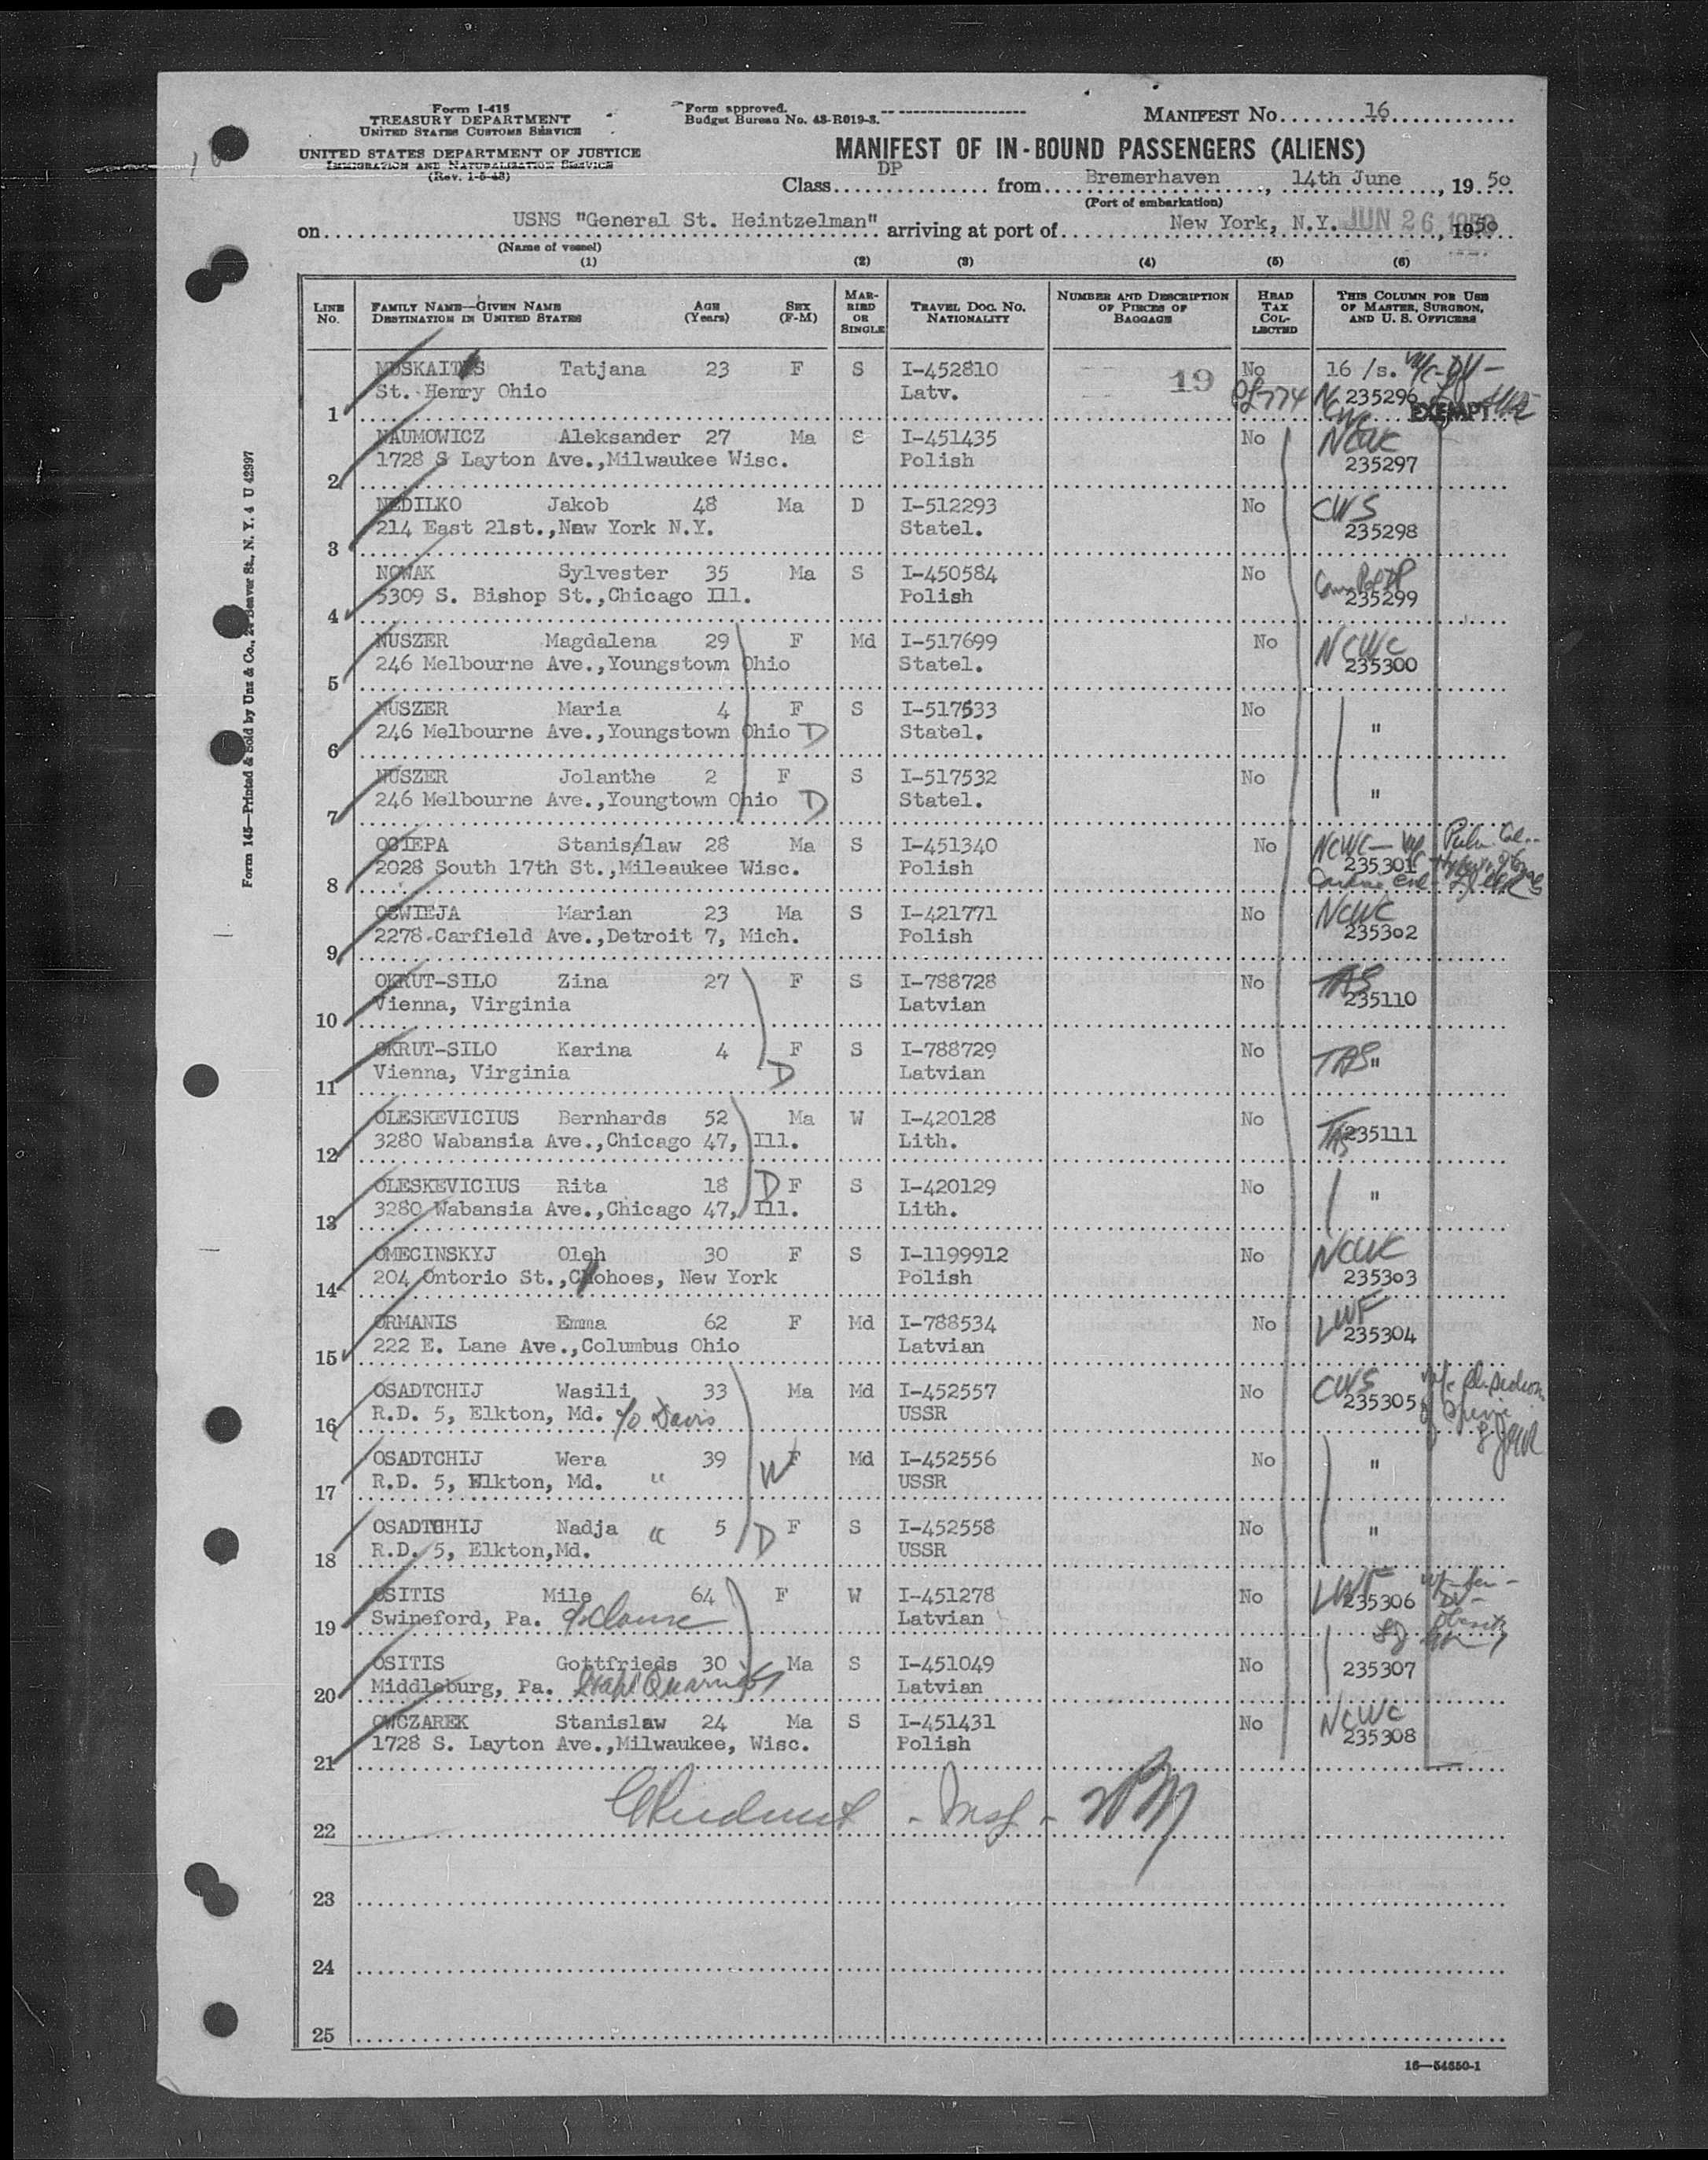 Form I-415
TREASURY DEPARTMENT
UNITED STATES CUSTOMS SERVICE
UNITED STATES DEPARTMENT OF JUSTICE
IMMIGRATION AND NATURALIZATION SERVICE
(Rev. 1-5-48)
Form approved.
Budget Bureau No. 43-R019-3.
MANIFEST No. 16
MANIFEST OF IN-BOUND PASSENGERS (ALIENS)
Class DP from Bremerhaven, 14th June, 1950
(Port of embarkation)
on USNS "General St. Heintzelman" arriving at port of New York, N.Y. JUN 26 1950, 1950
(Name of vessel)
(1) (2) (3) (4) (5) (6)
LINE No. FAMILY NAME—GIVEN NAME DESTINATION IN UNITED STATES AGE (Years) SEX (F-M) MARRIED OR SINGLE TRAVEL DOC. NO. NATIONALITY NUMBER AND DESCRIPTION OF PIECES OF BAGGAGE HEAD TAX COLLECTED THIS COLUMN FOR USE OF MASTER, SURGEON, AND U. S. OFFICERS
MUSKAITIS Tatjana 23 F S I-452810 19 No 16 /s.
1 St. Henry Ohio Latv. 235296 EXEMPT
NCWC
NAUMOWICZ Aleksander 27 Ma S I-451435 No NCWC
2 1728 S Layton Ave.,Milwaukee Wisc. Polish 235297
NEDILKO Jakob 48 Ma D I-512293 No CWS
3 214 East 21st.,New York N.Y. Statel. 235298
NOWAK Sylvester 35 Ma S I-450584 No
4 5309 S. Bishop St.,Chicago Ill. Polish 235299
NUSZER Magdalena 29 F Md I-517699 No NCWC
5 246 Melbourne Ave.,Youngstown Ohio Statel. 235300
NUSZER Maria 4 F S I-517533 No
6 246 Melbourne Ave.,Youngstown Ohio D Statel. "
NUSZER Jolanthe 2 F S I-517532 No
7 246 Melbourne Ave.,Youngtown Ohio D Statel. "
OCIEPA Stanislaw 28 Ma S I-451340 No NCWC
8 2028 South 17th St.,Mileaukee Wisc. Polish 235301
OSWIEJA Marian 23 Ma S I-421771 No NCWC
9 2278 Carfield Ave.,Detroit 7, Mich. Polish 235302
OKRUT-SILO Zina 27 F S I-788728 No TAS
10 Vienna, Virginia Latvian 235110
OKRUT-SILO Karina 4 F S I-788729 No
11 Vienna, Virginia D Latvian TAS "
OLESKEVICIUS Bernhards 52 Ma W I-420128 No
12 3280 Wabansia Ave.,Chicago 47, Ill. Lith. TAS 235111
OLESKEVICIUS Rita 18 D F S I-420129 No
13 3280 Wabansia Ave.,Chicago 47, Ill. Lith. "
OMECINSKYJ Oleh 30 F S I-1199912 No NCWC
14 204 Ontorio St.,Cohoes, New York Polish 235303
ORMANIS Emma 62 F Md I-788534 No LWF
15 222 E. Lane Ave.,Columbus Ohio Latvian 235304
OSADTCHIJ Wasili 33 Ma Md I-452557 No CWS
16 R.D. 5, Elkton, Md. c/o Davis USSR 235305
OSADTCHIJ Wera 39 W F Md I-452556 No
17 R.D. 5, Elkton, Md. " USSR "
OSADTCHIJ Nadja " 5 D F S I-452558 No
18 R.D. 5, Elkton,Md. USSR "
OSITIS Mile 64 F W I-451278 No LWF
19 Swineford, Pa. Latvian 235306
OSITIS Gottfrieds 30 Ma S I-451049 No
20 Middleburg, Pa. Latvian 235307
OWCZAREK Stanislaw 24 Ma S I-451431 No NCWC
21 1728 S. Layton Ave.,Milwaukee, Wisc. Polish 235308
22
23
24
25
16—54650-1
Form 145—Printed & Sold by Unz & Co., 24 Beaver St., N. Y. 4 U 42997